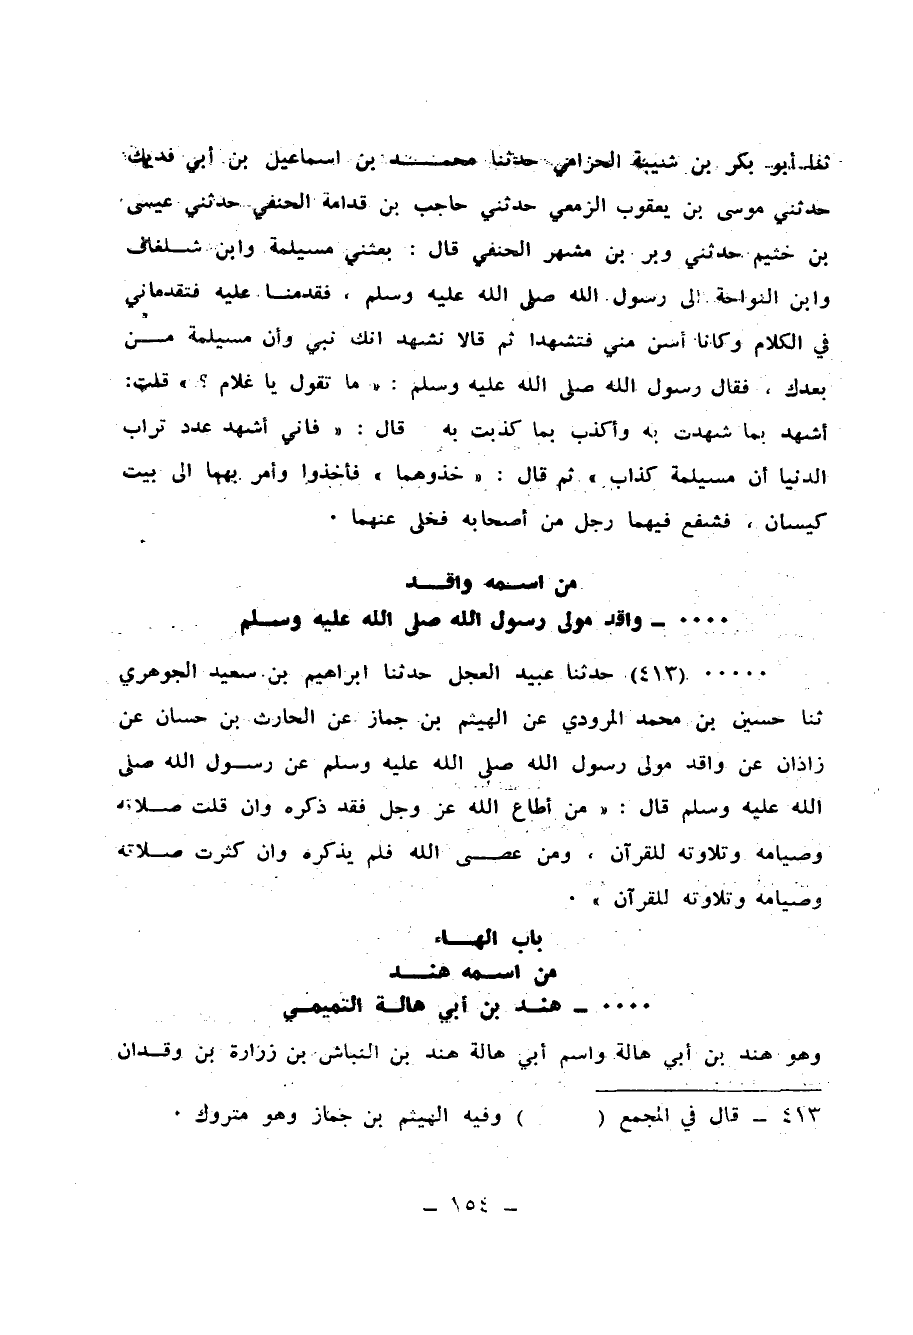 ثنا أبو بكر بن شيبة الحزامي حدثنا محمد بن اسماعيل بن أبي فديك
حدثني موسى بن يعقوب الزمعي حدثني حاجب بن قدامة الحنفي حدثني عيسى
بن خثيم حدثني وبر بن مشهر الحنفي قال : بعثني مسيلمة وابن شلغاف
وابن النواحة الى رسول الله صلى الله عليه وسلم ، فقدمنا عليه فتقدماني
في الكلام وكانا أسن مني فتشهدا ثم قالا نشهد انك نبي وأن مسيلمة من
بعدك ، فقال رسول الله صلى الله عليه وسلم : « ما تقول يا غلام ؟ » قلت:
أشهد بما شهدت به وأكذب بما كذبت به قال : « فاني أشهد عدد تراب
الدنيا أن مسيلمة كذاب » ثم قال : « خذوهما » فأخذوا وأمر بهما الى بيت
كيسان ، فشفع فيهما رجل من أصحابه فخلى عنهما ٠
من اسمه واقد
٠٠٠٠ ـ واقد مولى رسول الله صلى الله عليه وسلم
٠٠٠٠٠ (٤١٣) حدثنا عبيد العجل حدثنا ابراهيم بن سعيد الجوهري
ثنا حسين بن محمد المرودي عن الهيثم بن جماز عن الحارث بن حسان عن
زاذان عن واقد مولى رسول الله صلى الله عليه وسلم عن رسول الله صلى
الله عليه وسلم قال : « من أطاع الله عز وجل فقد ذكره وان قلت صلاته
وصيامه وتلاوته للقرآن ، ومن عصى الله فلم يذكره وان كثرت صلاته
وصيامه وتلاوته للقرآن » ٠
باب الهاء
من اسمه هند
٠٠٠٠ ـ هند بن أبي هالة التميمي
وهو هند بن أبي هالة واسم أبي هالة هند بن النباش بن زرارة بن وقدان
٤١٣ ـ قال في المجمع ( ) وفيه الهيثم بن جماز وهو متروك ٠
ـ ١٥٤ ـ